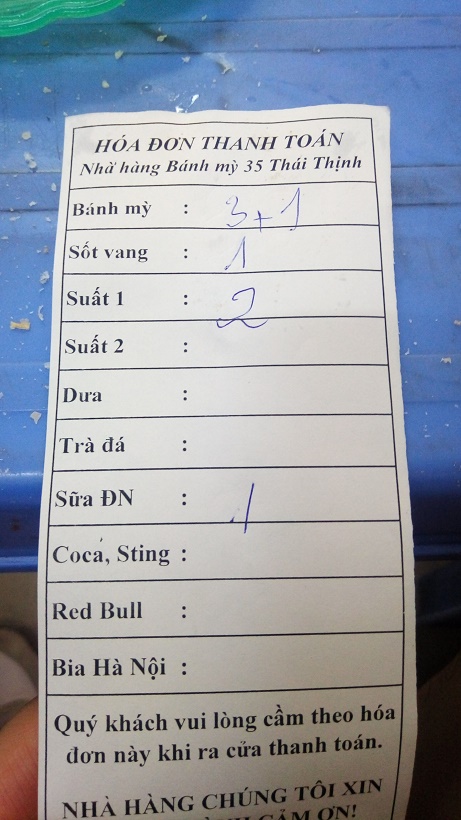 HÓA ĐƠN THANH TOÁN
Nhà hàng Bánh mỳ 35 Thái Thịnh
Bánh mỳ : 3+1
Sốt vang : 1
Suất 1 : 2
Suất 2 :
Dưa :
Trà đá :
Sữa ĐN : 1
Coca, Sting :
Red Bull :
Bia Hà Nội :
Quý khách vui lòng cầm theo hóa
đơn này khi ra cửa thanh toán.
NHÀ HÀNG CHÚNG TÔI XIN
CẢM ƠN!